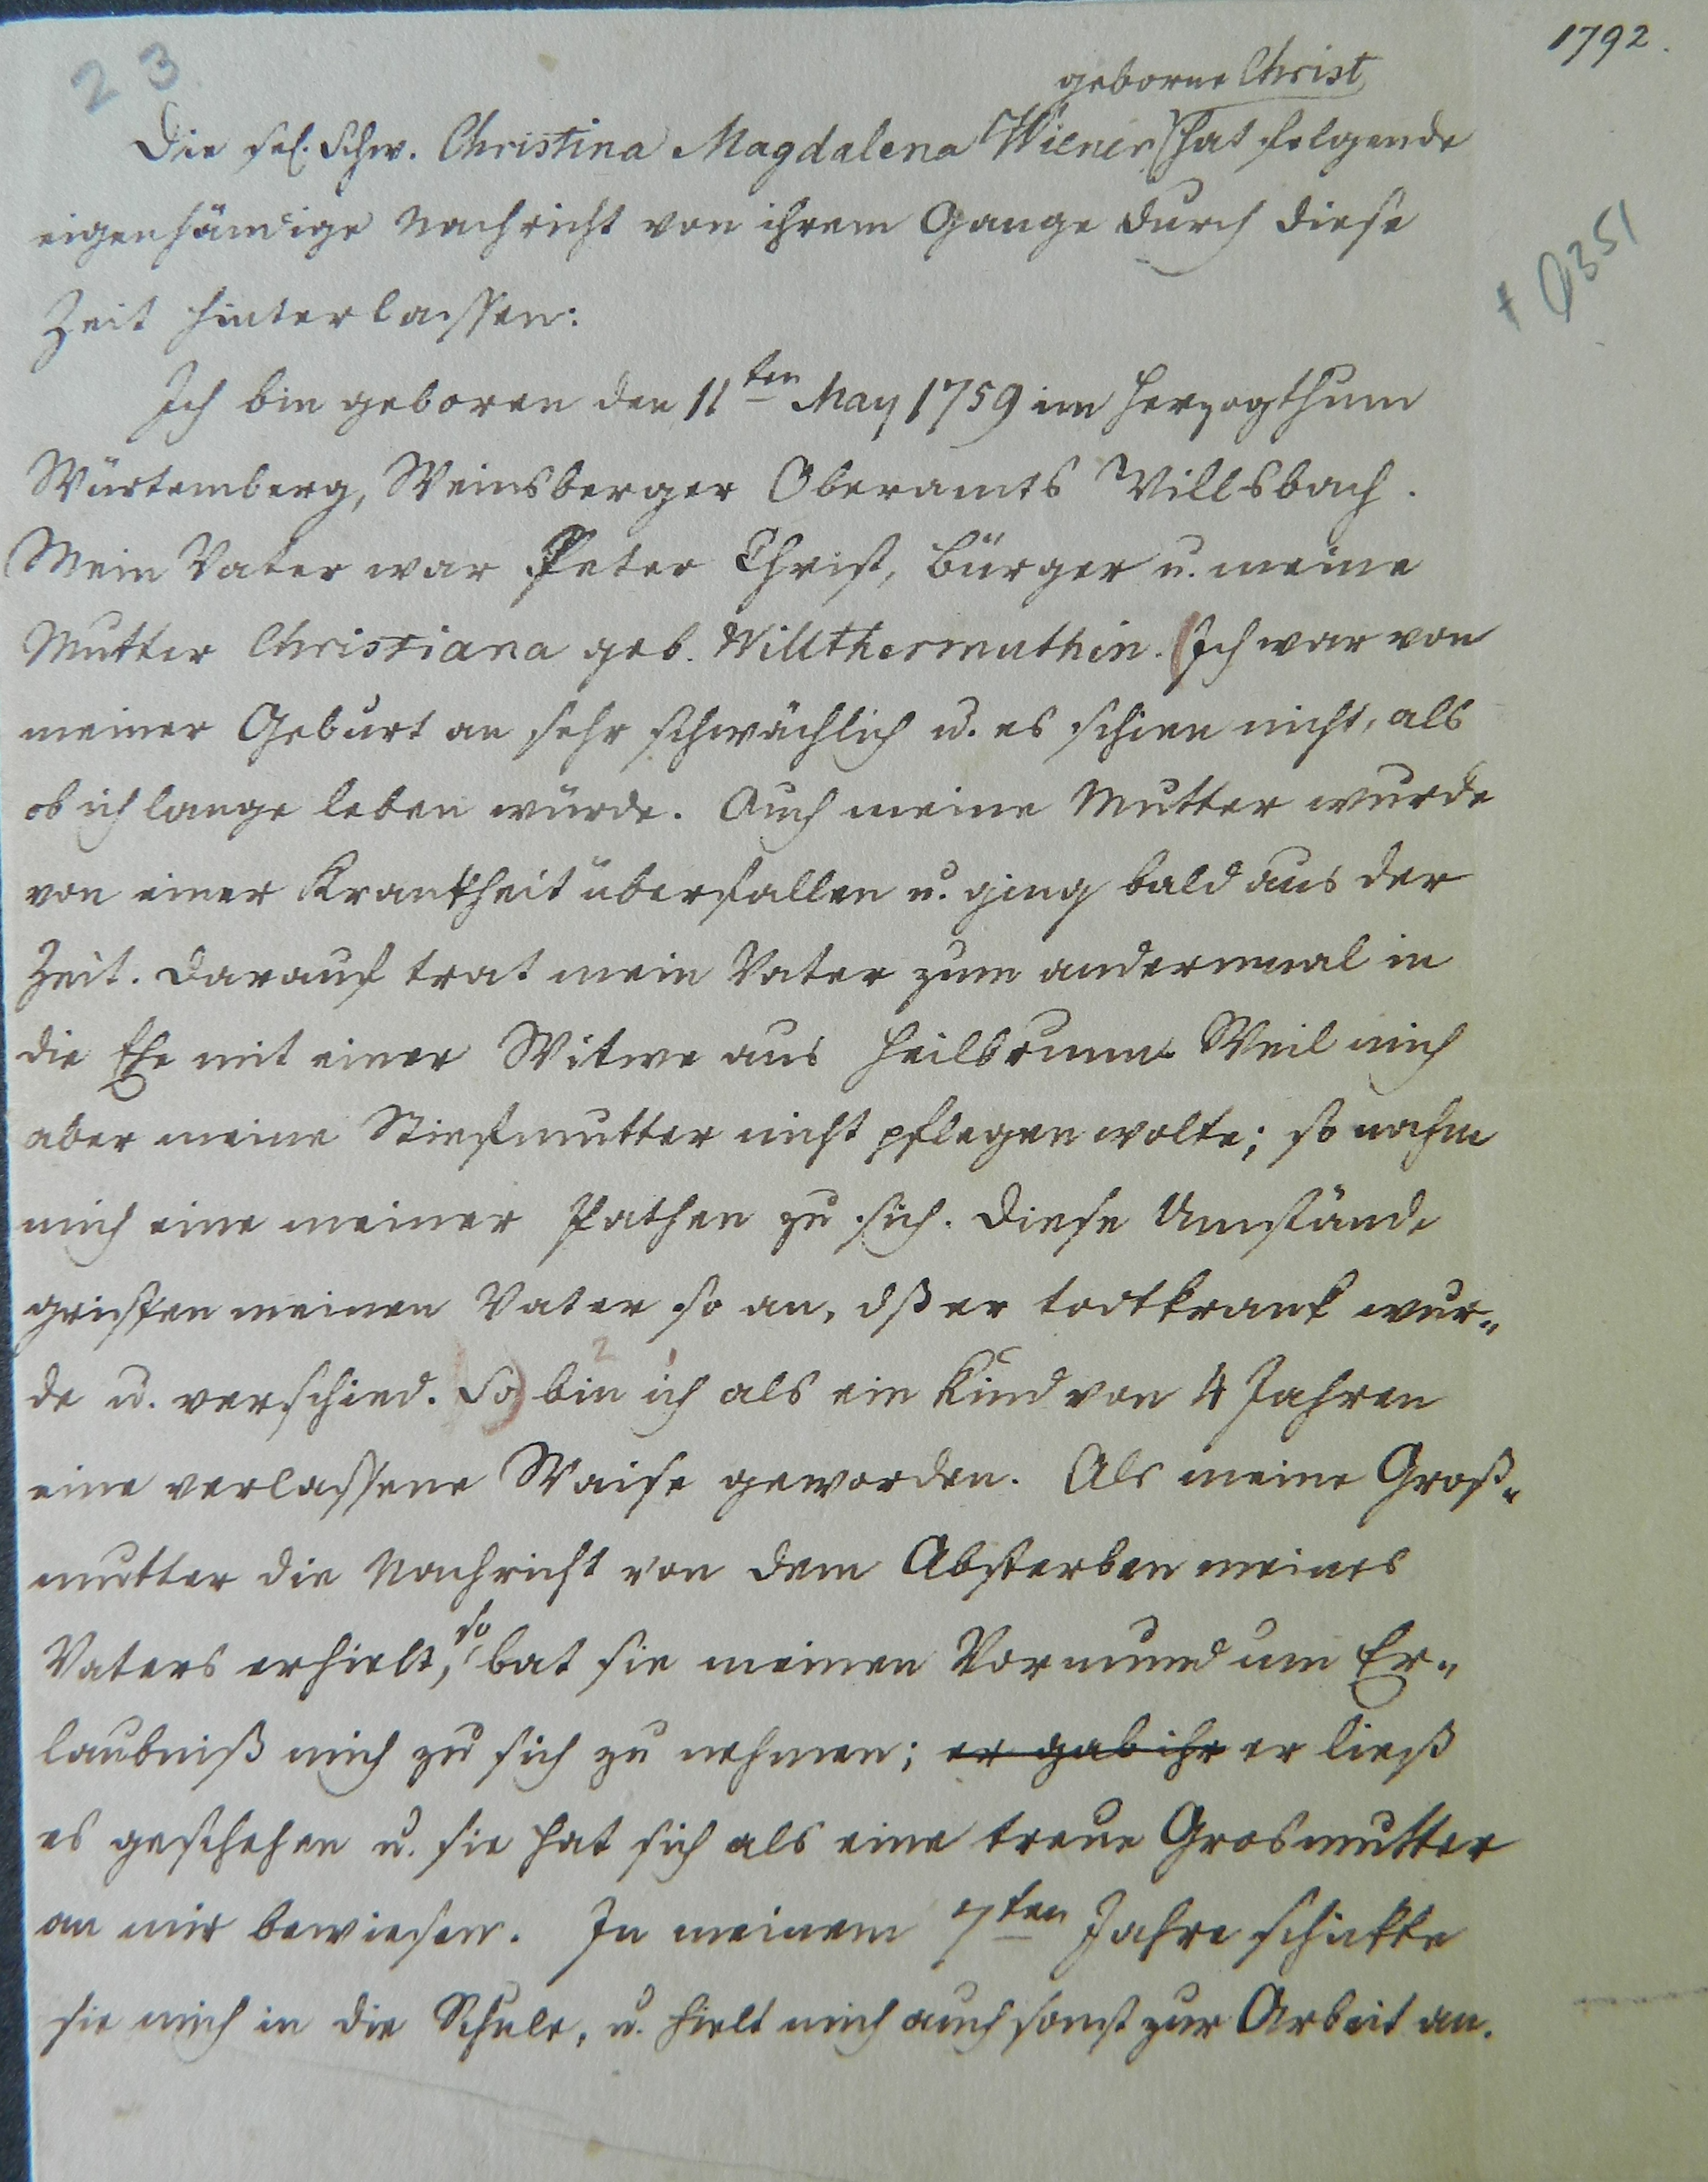 1792.
23
geborne Christ
Die sel. Schw. Christina Magdalena Wiener hat folgende
eigenhändige Nachricht von ihrem Gange durch diese
Zeit hinterlassen:
+ Q351
Ich bin geboren den 11ten May 1759 im Herzogthum
Würtemberg, Weinsberger Oberamts Willsbach.
Mein Vater war Peter Christ, Bürger u. meine
Mutter Christiana geb. Willthermuthin. (Ich war von
meiner Geburt an sehr schwächlich u. es schien nicht, als
ob ich lange leben würde. Auch meine Mutter wurde
von einer Krankheit überfallen u. ging bald aus der
Zeit. Darauf trat mein Vater zum andermal in
die Ehe mit einer Witwe aus Heilbrunn. Weil mich
aber meine Stiefmutter nicht pflegen wolte; so nahm
mich eine meiner Pathen zu sich. Diese Umstände
griffen meinen Vater so an, dß er todtkrank wur„
de u. verschied. So) bin ich als ein Kind von 4 Jahren
eine verlassene Waise geworden. Als meine Groß„
mutter die Nachricht von dem Absterben meines
Vaters erhielt, so bat sie meinen Vormund um Er„
laubniß mich zu sich zu nehmen; er gab ihr er ließ
es geschehen u. sie hat sich als eine treue Grosmutter
an mir bewiesen. In meinem 7ten Jahre schikte
sie mich in die Schule, u. hielt mich auch sonst zur Arbeit an.